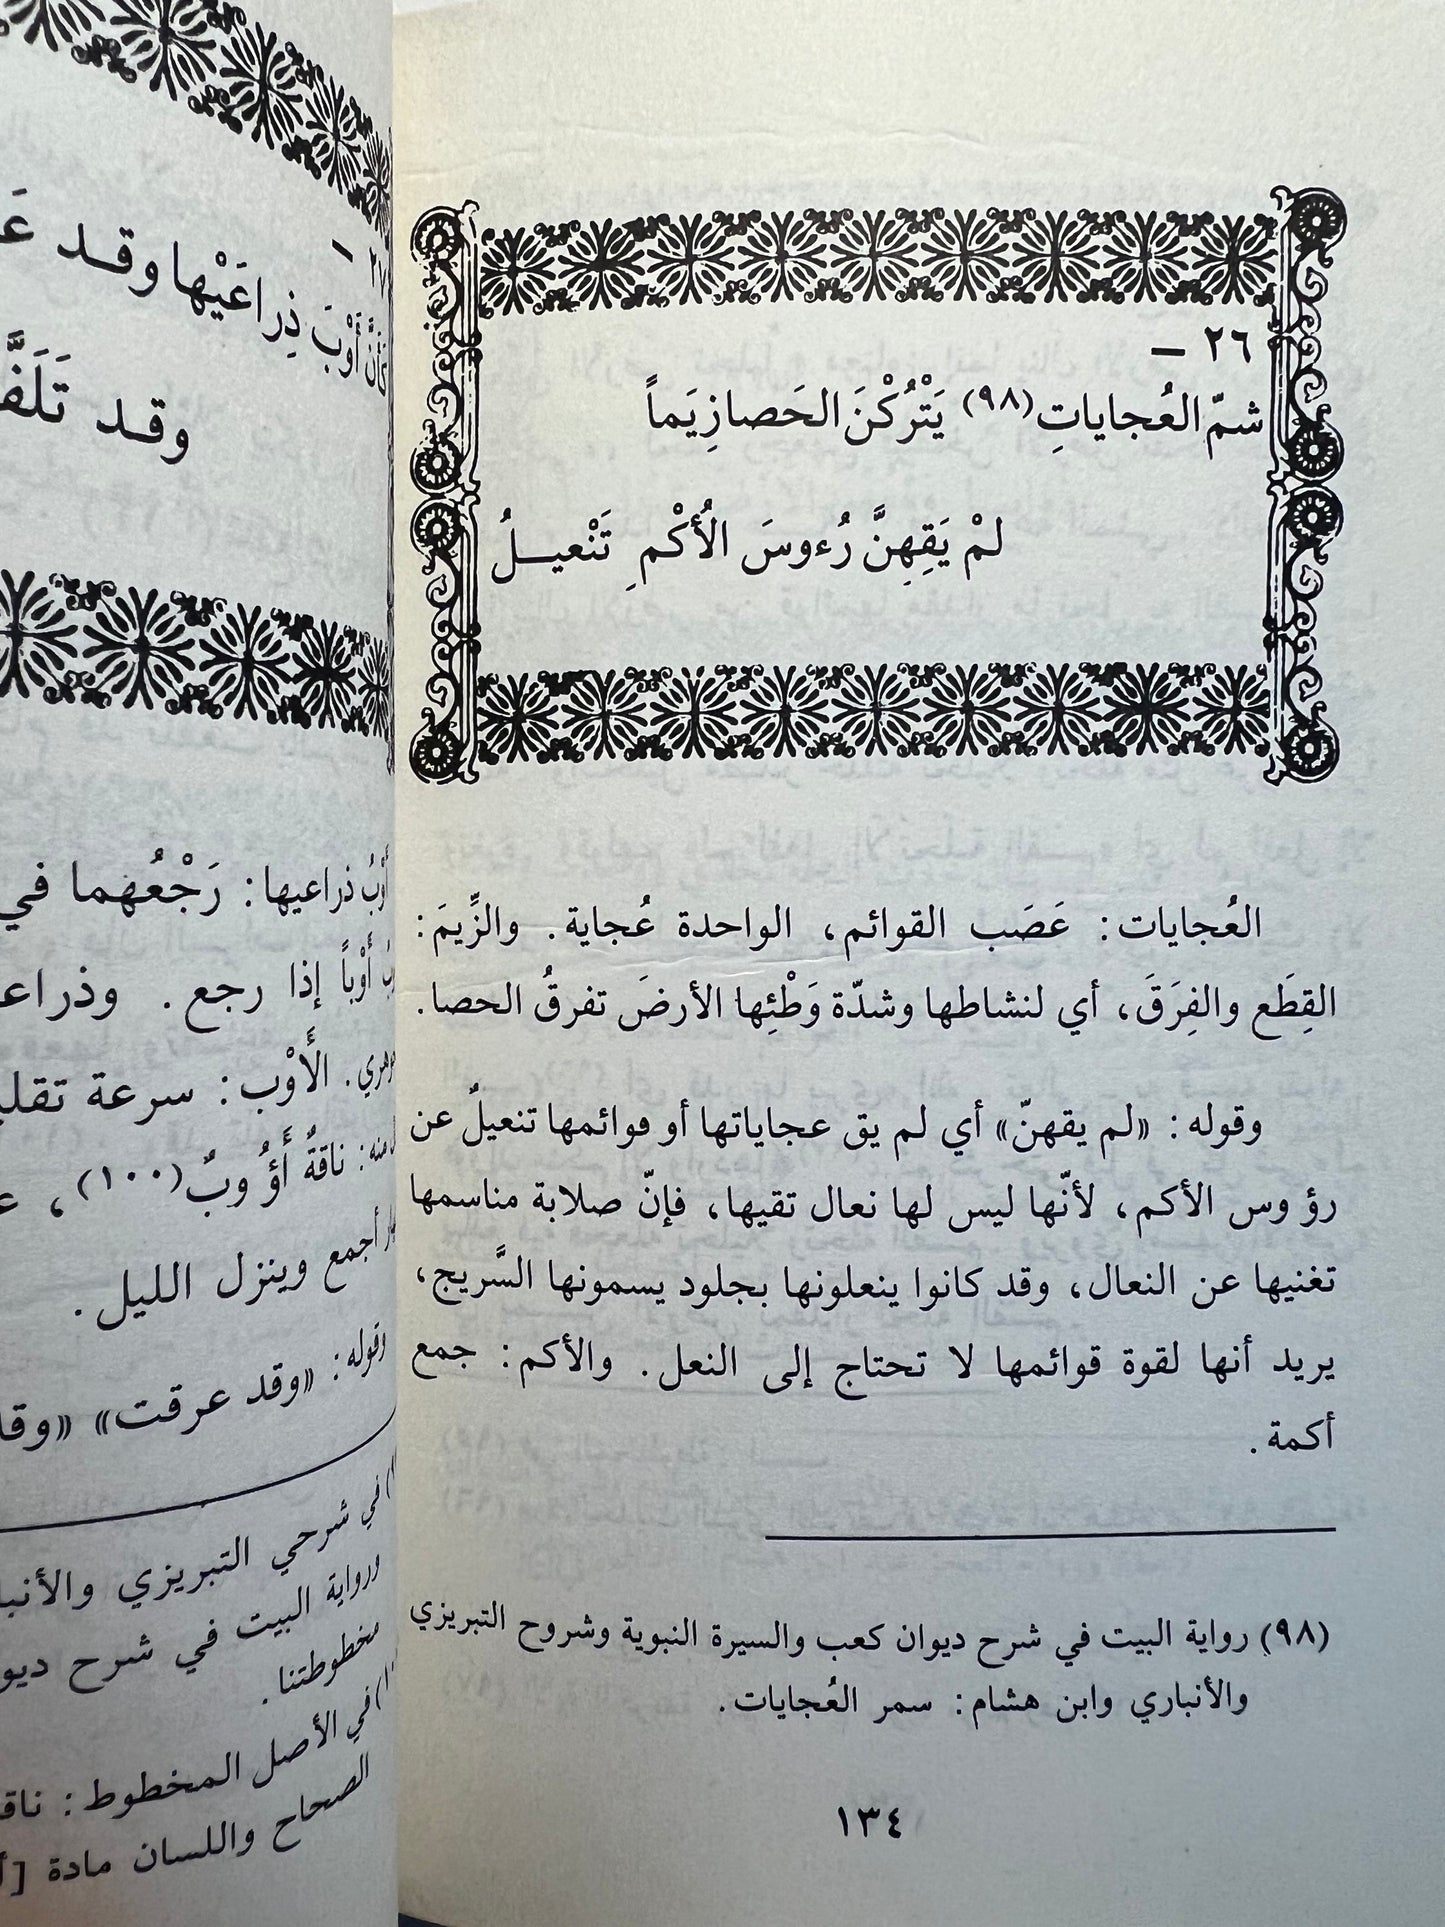 ٢٦ –
شمّ العُجاياتِ (٩٨) يَتْرُكْنَ الحَصا زِيَماً
لمْ يَقِهِنَّ رُءوسَ الأُكْمِ تَنْعيــلُ
العُجايات: عَصَب القوائم، الواحدة عُجاية. والزِّيمَ:
القِطَع والفِرَقَ، أي لنشاطها وشدّة وَطْئِها الأرضَ تفرقُ الحصا.
وقوله: «لم يقهنّ» أي لم يق عجاياتها أو قوائمها تنعيلٌ عن
رؤوس الأكم، لأنّها ليس لها نعال تقيها، فإنّ صلابة مناسمها
تغنيها عن النعال، وقد كانوا ينعلونها بجلود يسمونها السَّريج،
يريد أنها لقوة قوائمها لا تحتاج إلى النعل. والأكم: جمع
أكمة.
(٩٨) رواية البيت في شرح ديوان كعب والسيرة النبوية وشروح التبريزي
والأنباري وابن هشام: سمر العُجايات.
١٣٤
٢٧ –
كأنَّ أَوْبَ ذِراعَيْها وقـد
وقـد
أَوْبُ ذراعيها: رَجْعُهما في
أَوْباً إذا رجع. وذراعـ
الأَوْب: سرعة
منه: ناقةٌ أَؤُوبٌ (١٠٠)،
أجمع وينزل الليل.
وقوله: «وقد عرقت»
في شرحي التبريزي
ورواية البيت في شرح
مخطوطتنا.
في الأصل المخطوط:
الصحاح واللسان مادة